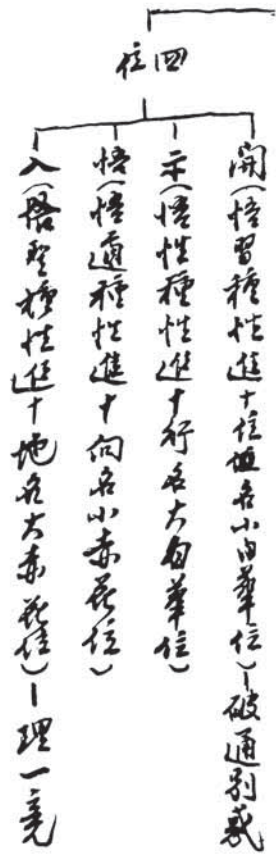 四位
開(悟習種性進十住位名小白華位)—破通別惑
示(悟性種性進十行名大白華位)
悟(悟道種性進十向名小赤華位)
入(悟聖種性進十地名大赤華位)—理一竟